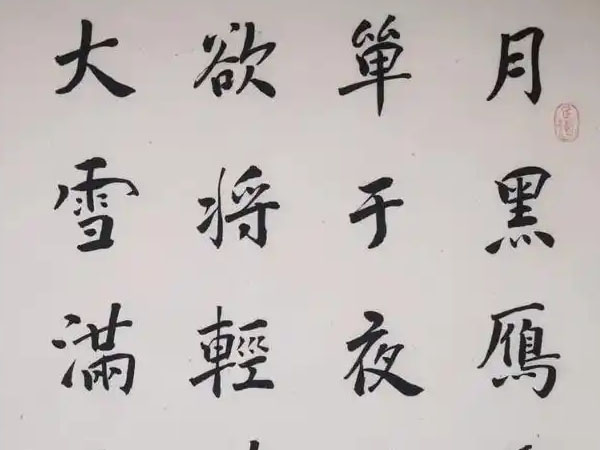 月黑鴈
單于夜
欲将輕
大雪滿